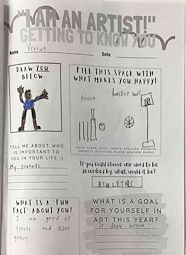 "I AM AN ARTIST!"
GETTING TO KNOW YOU
Name
Date
DRAW YOU
BELOW:
FILL THIS SPACE WITH
WHAT MAKES YOU HAPPY!
basket ball
TELL ME ABOUT WHO
IS IMPORTANT TO
YOU IN YOUR LIFE :)
My parents
If you could choose one word to be
described by, what would it be?
ATHLETIC
WHAT IS A FUN
FACT ABOUT YOU?
I am good at
sports and
WHAT IS A GOAL
FOR YOURSELF IN
ART THIS YEAR?